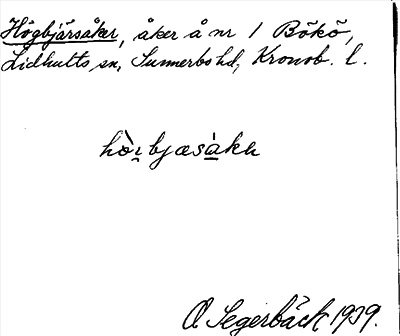 Högbjärsåker, åker å nr 1 Bökö,
Lidhults sn, Sunnerbo hd, Kronob. l.
O Segerbäck 1939.